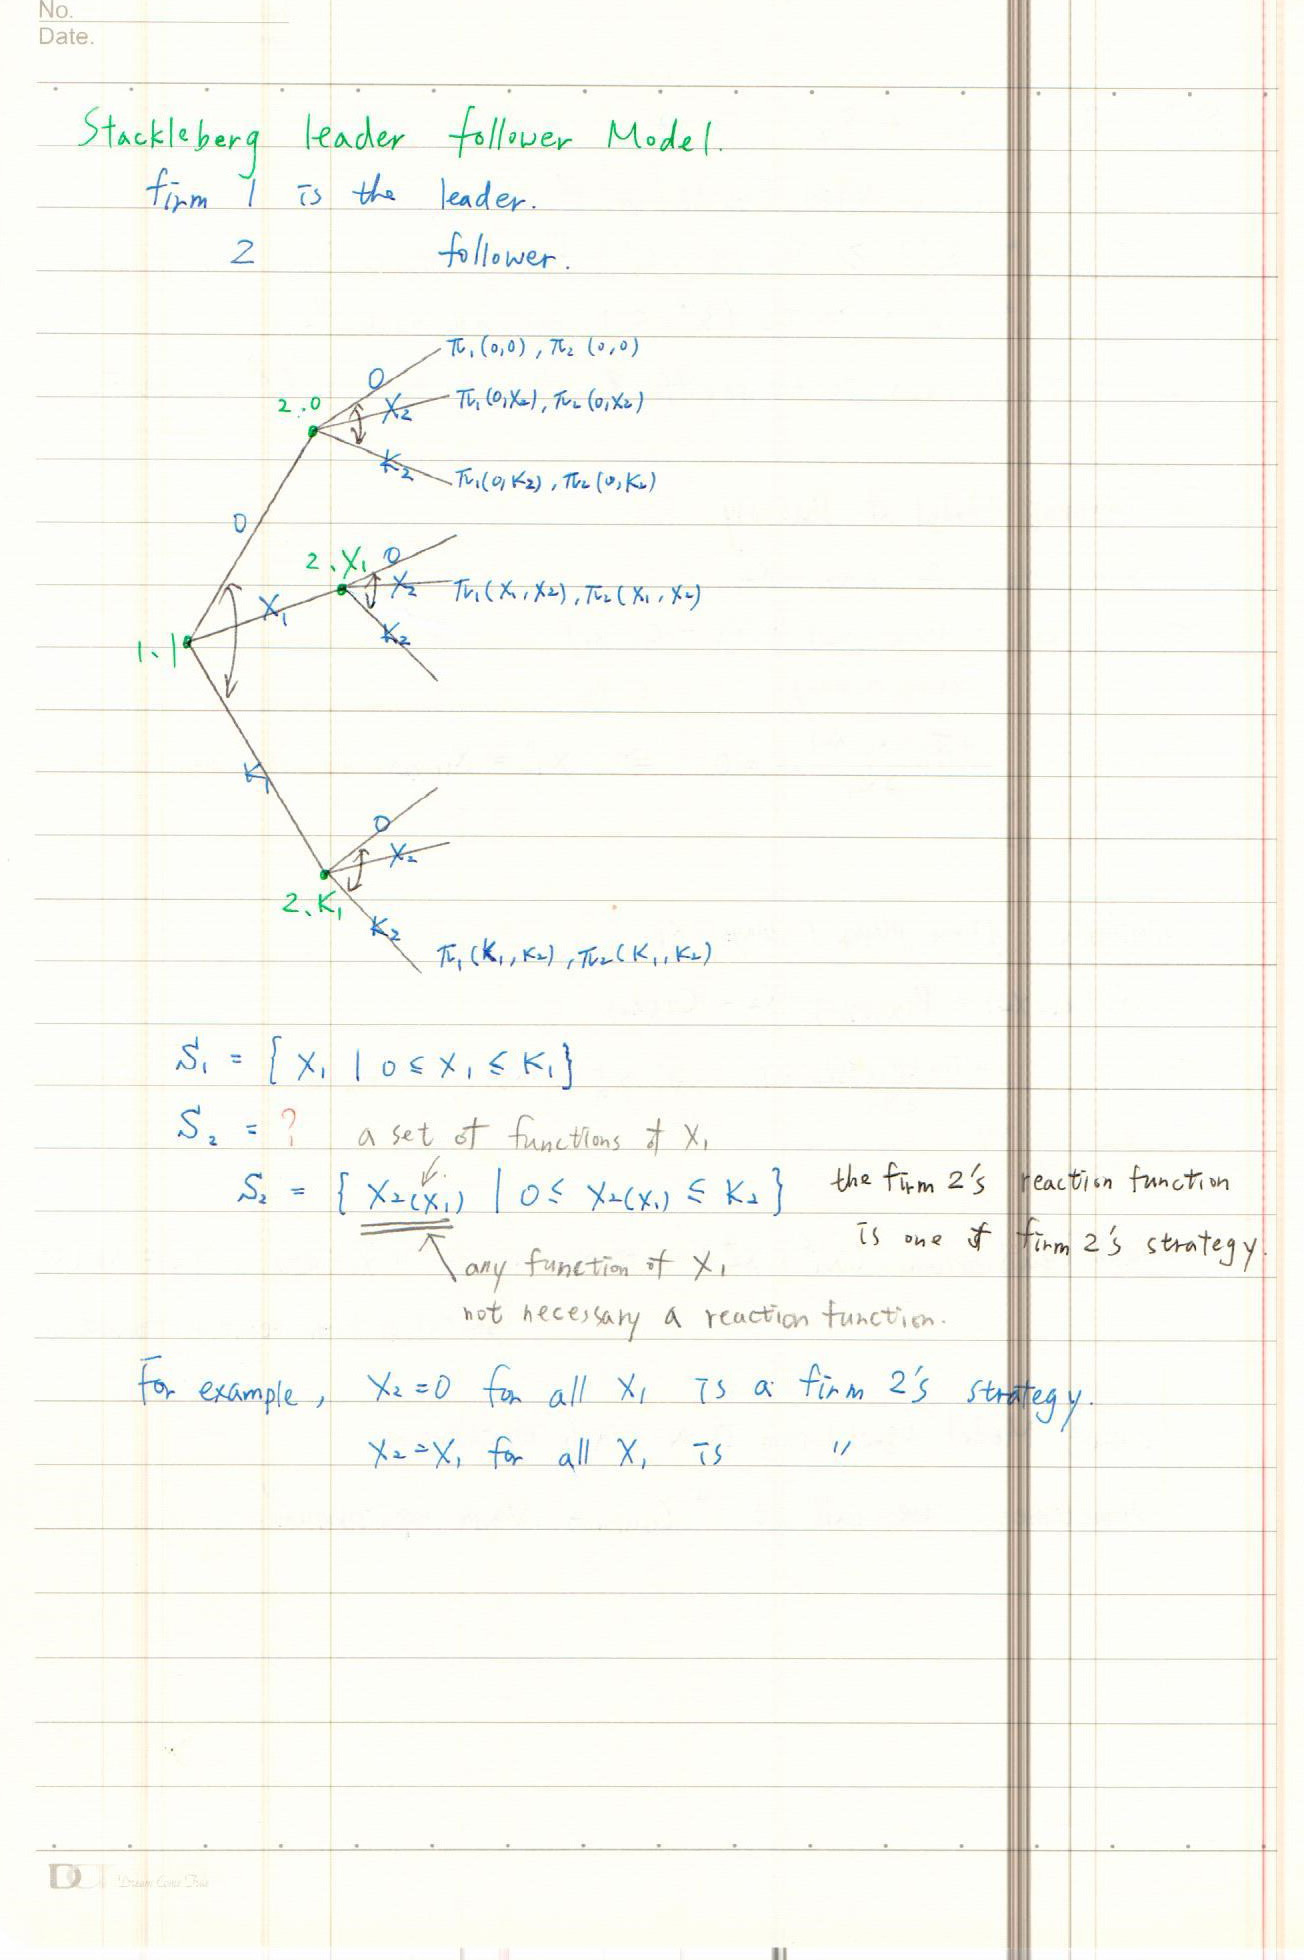 No.
Date.
Stackleberg leader follower Model.
firm 1 is the leader.
2 follower.
π₁(0,0), π₂(0,0)
0
2.0
X₂ π₁(0,X₂), π₂(0,X₂)
K₂ π₁(0,K₂), π₂(0,K₂)
0
2.X₁ 0
X₂ π₁(X₁,X₂), π₂(X₁,X₂)
X₁
K₂
1.1
K₁
0
X₂
2.K₁
K₂
π₁(K₁,K₂), π₂(K₁,K₂)
S₁ = { X₁ | 0 ≤ X₁ ≤ K₁ }
S₂ = ? a set of functions of X₁
S₂ = { X₂(X₁) | 0 ≤ X₂(X₁) ≤ K₂ } the firm 2's reaction function
is one of firm 2's strategy.
any function of X₁
not necessary a reaction function.
For example, X₂=0 for all X₁ is a firm 2's strategy.
X₂=X₁ for all X₁ is "
DCT Dream Come True